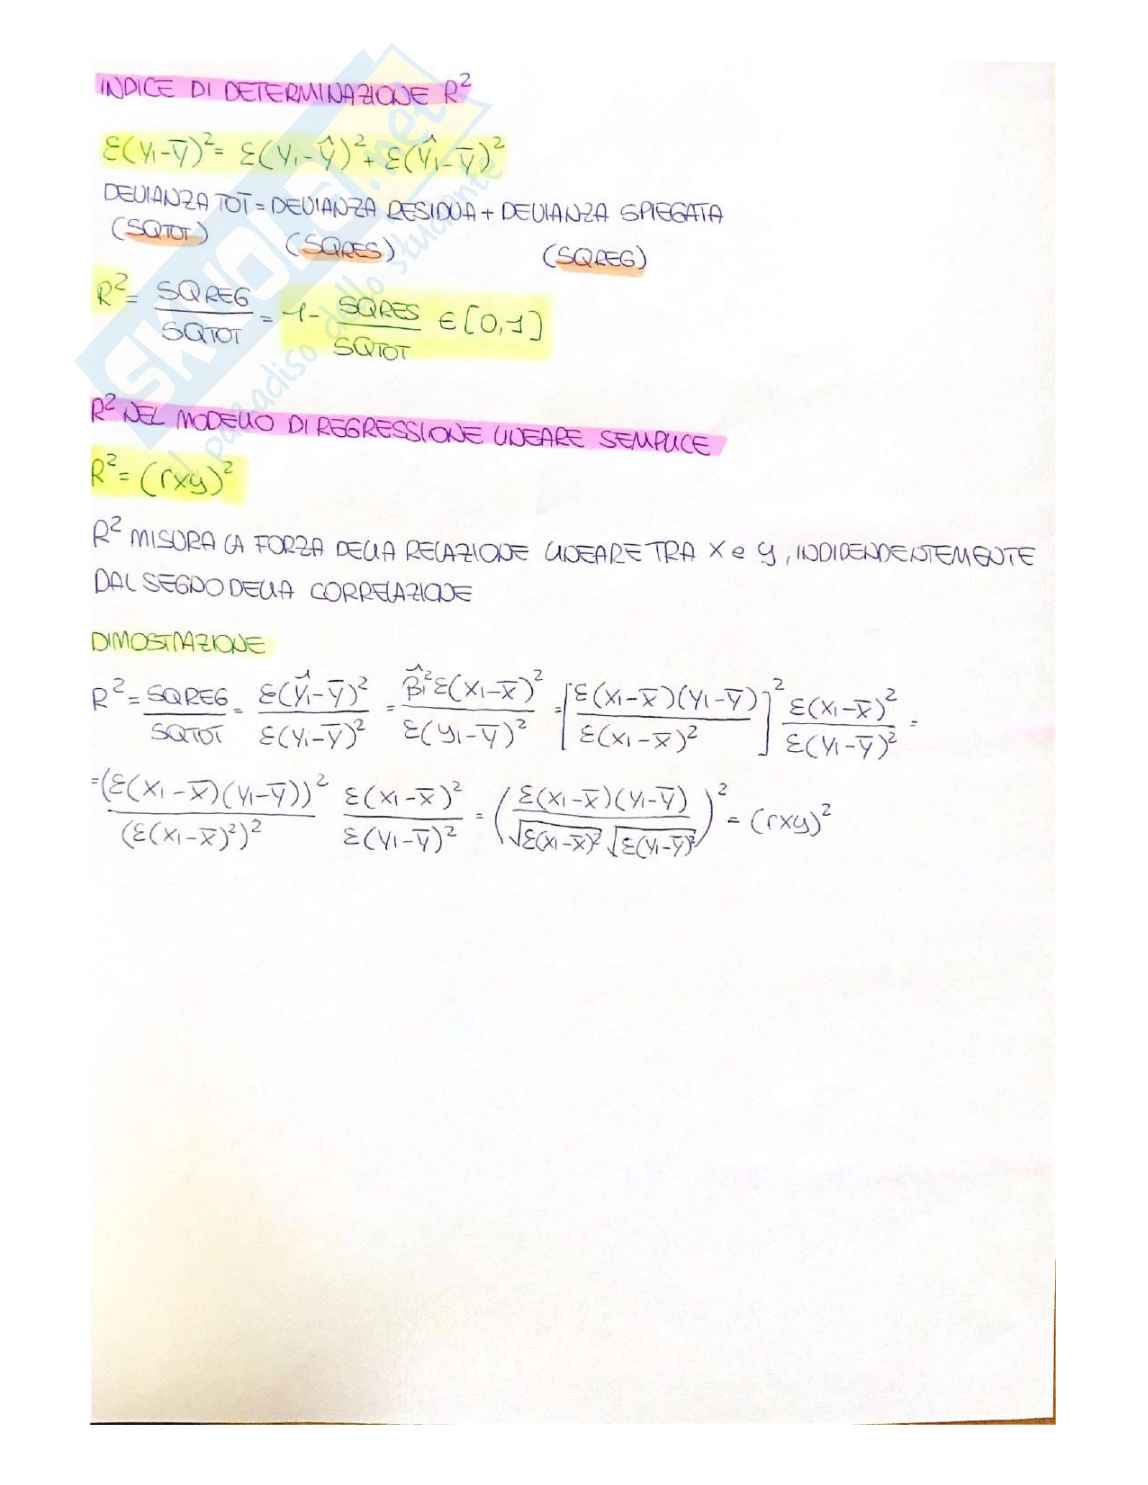 INDICE DI DETERMINAZIONE R²
Ɛ(yı-ȳ)²= Ɛ(yı-ŷ)²+ Ɛ(ŷı-ȳ)²
DEVIANZA TOT = DEVIANZA RESIDUA + DEVIANZA SPIEGATA
(SQTOT) (SQRES) (SQREG)
R²= SQREG/SQTOT = 1- SQRES/SQTOT ∈ [0,1]
R² NEL MODELLO DI REGRESSIONE LINEARE SEMPLICE
R²= (rxy)²
R² MISURA LA FORZA DELLA RELAZIONE LINEARE TRA X e y, INDIDENDENTEMENTE
DAL SEGNO DELLA CORRELAZIONE
DIMOSTRAZIONE
R²= SQREG/SQTOT = Ɛ(ŷı-ȳ)²/Ɛ(yı-ȳ)² = β̂ı²Ɛ(xı-x̄)²/Ɛ(yı-ȳ)² = [Ɛ(xı-x̄)(yı-ȳ)/Ɛ(xı-x̄)²]² Ɛ(xı-x̄)²/Ɛ(yı-ȳ)² =
=(Ɛ(xı-x̄)(yı-ȳ))²/(Ɛ(xı-x̄)²)² Ɛ(xı-x̄)²/Ɛ(yı-ȳ)² = (Ɛ(xı-x̄)(yı-ȳ)/√Ɛ(xı-x̄)² √Ɛ(yı-ȳ)²)² = (rxy)²
SKUOLA.net
il paradiso dello studente